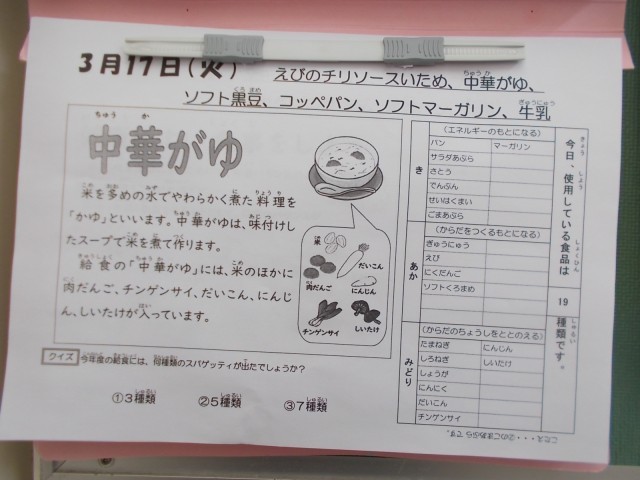 3月17日(火)
えびのチリソースいため、中華がゆ、
ソフト黒豆、コッペパン、ソフトマーガリン、牛乳
中華がゆ
米を多めの水でやわらかく煮た料理を
「かゆ」といいます。中華がゆは、味付けし
たスープで米を煮て作ります。
給食の「中華がゆ」には、米のほかに
肉だんご、チンゲンサイ、だいこん、にんじ
ん、しいたけが入っています。
米
だいこん
肉だんご
にんじん
チンゲンサイ
しいたけ
クイズ
今年度の給食には、何種類のスパゲッティが出たでしょうか？
①3種類 ②5種類 ③7種類
今日、使用している食品は
19
種類です。
き
(エネルギーのもとになる)
パン マーガリン
サラダあぶら
さとう
でんぷん
せいはくまい
ごまあぶら
あか
(からだをつくるもとになる)
ぎゅうにゅう
えび
にくだんご
ソフトくろまめ
みどり
(からだのちょうしをととのえる)
たまねぎ にんじん
しろねぎ しいたけ
しょうが
にんにく
だいこん
チンゲンサイ